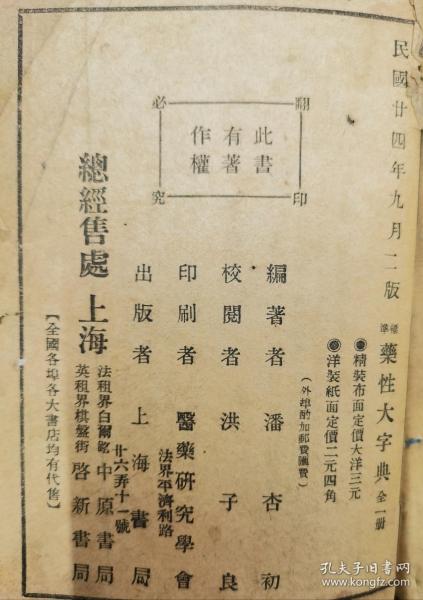 民國廿四年九月二版
標準 藥性大字典 全一冊
◉精裝布面定價大洋三元
◉洋裝紙面定價二元四角
（外埠酌加郵費匯費）
翻印必究
此書
有著
作權
編著者 潘杏初
校閱者 洪子良
印刷者 醫藥研究學會
法界平濟利路
廿六弄十一號
出版者 上海書局
總經售處 上海
法租界白爾路 中原書局
英租界棋盤街 啓新書局
【全國各埠各大書店均有代售】
孔夫子旧书网
www.kongfz.com